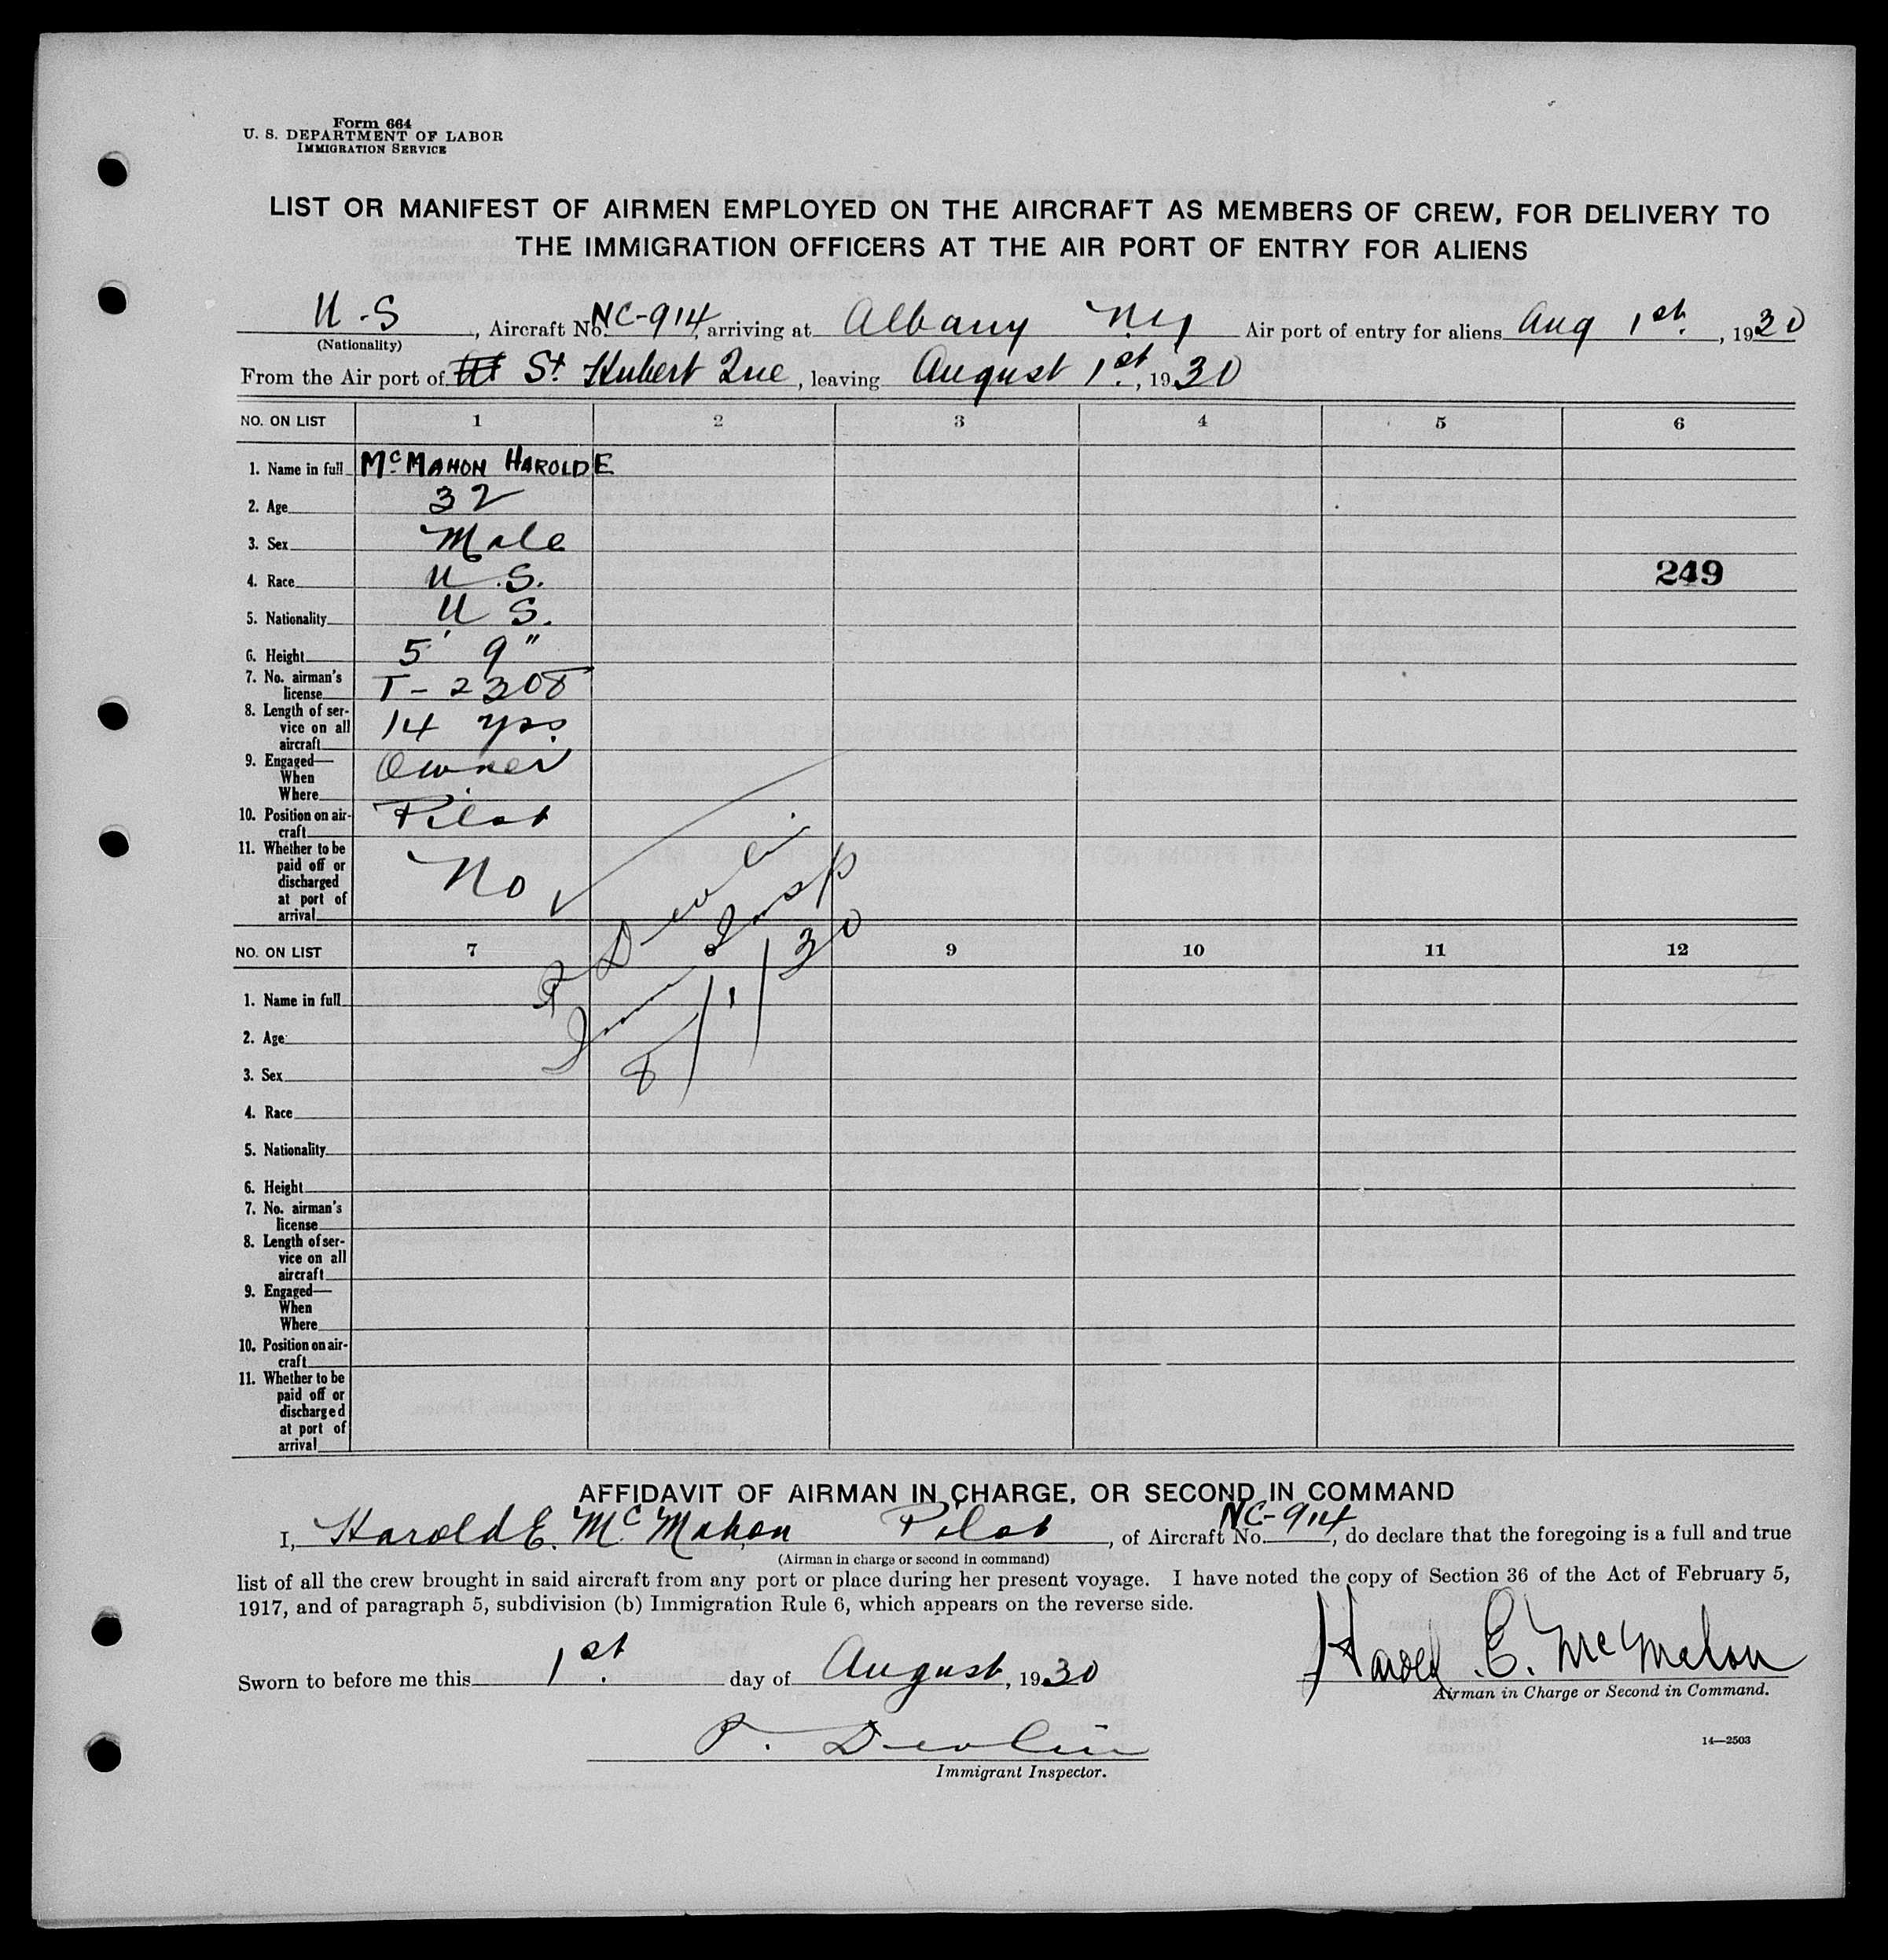 Form 664
U. S. DEPARTMENT OF LABOR
IMMIGRATION SERVICE
LIST OR MANIFEST OF AIRMEN EMPLOYED ON THE AIRCRAFT AS MEMBERS OF CREW, FOR DELIVERY TO
THE IMMIGRATION OFFICERS AT THE AIR PORT OF ENTRY FOR ALIENS
U.S, Aircraft No. NC-914, arriving at Albany NY Air port of entry for aliens Aug 1st, 1930
(Nationality)
From the Air port of St. Hubert Que, leaving August 1st, 1930
NO. ON LIST 1 2 3 4 5 6
1. Name in full McMAHON HAROLD E
2. Age 32
3. Sex Male
4. Race U.S. 249
5. Nationality U S.
6. Height 5' 9"
7. No. airman's
license T-2308
8. Length of ser-
vice on all
aircraft 14 yrs.
9. Engaged—
When Owner
Where
10. Position on air-
craft Pilot
11. Whether to be
paid off or
discharged
at port of
arrival No
P Devlin
Imm Insp
8/1/30
NO. ON LIST 7 8 9 10 11 12
1. Name in full
2. Age
3. Sex
4. Race
5. Nationality
6. Height
7. No. airman's
license
8. Length of ser-
vice on all
aircraft
9. Engaged—
When
Where
10. Position on air-
craft
11. Whether to be
paid off or
discharged
at port of
arrival
AFFIDAVIT OF AIRMAN IN CHARGE, OR SECOND IN COMMAND
I, Harold E. McMahon Pilot, of Aircraft No. NC-914, do declare that the foregoing is a full and true
(Airman in charge or second in command)
list of all the crew brought in said aircraft from any port or place during her present voyage. I have noted the copy of Section 36 of the Act of February 5,
1917, and of paragraph 5, subdivision (b) Immigration Rule 6, which appears on the reverse side.
Harold E. McMahon
Sworn to before me this 1st day of August, 1930
Airman in Charge or Second in Command.
P. Devlin
Immigrant Inspector.
14—2503